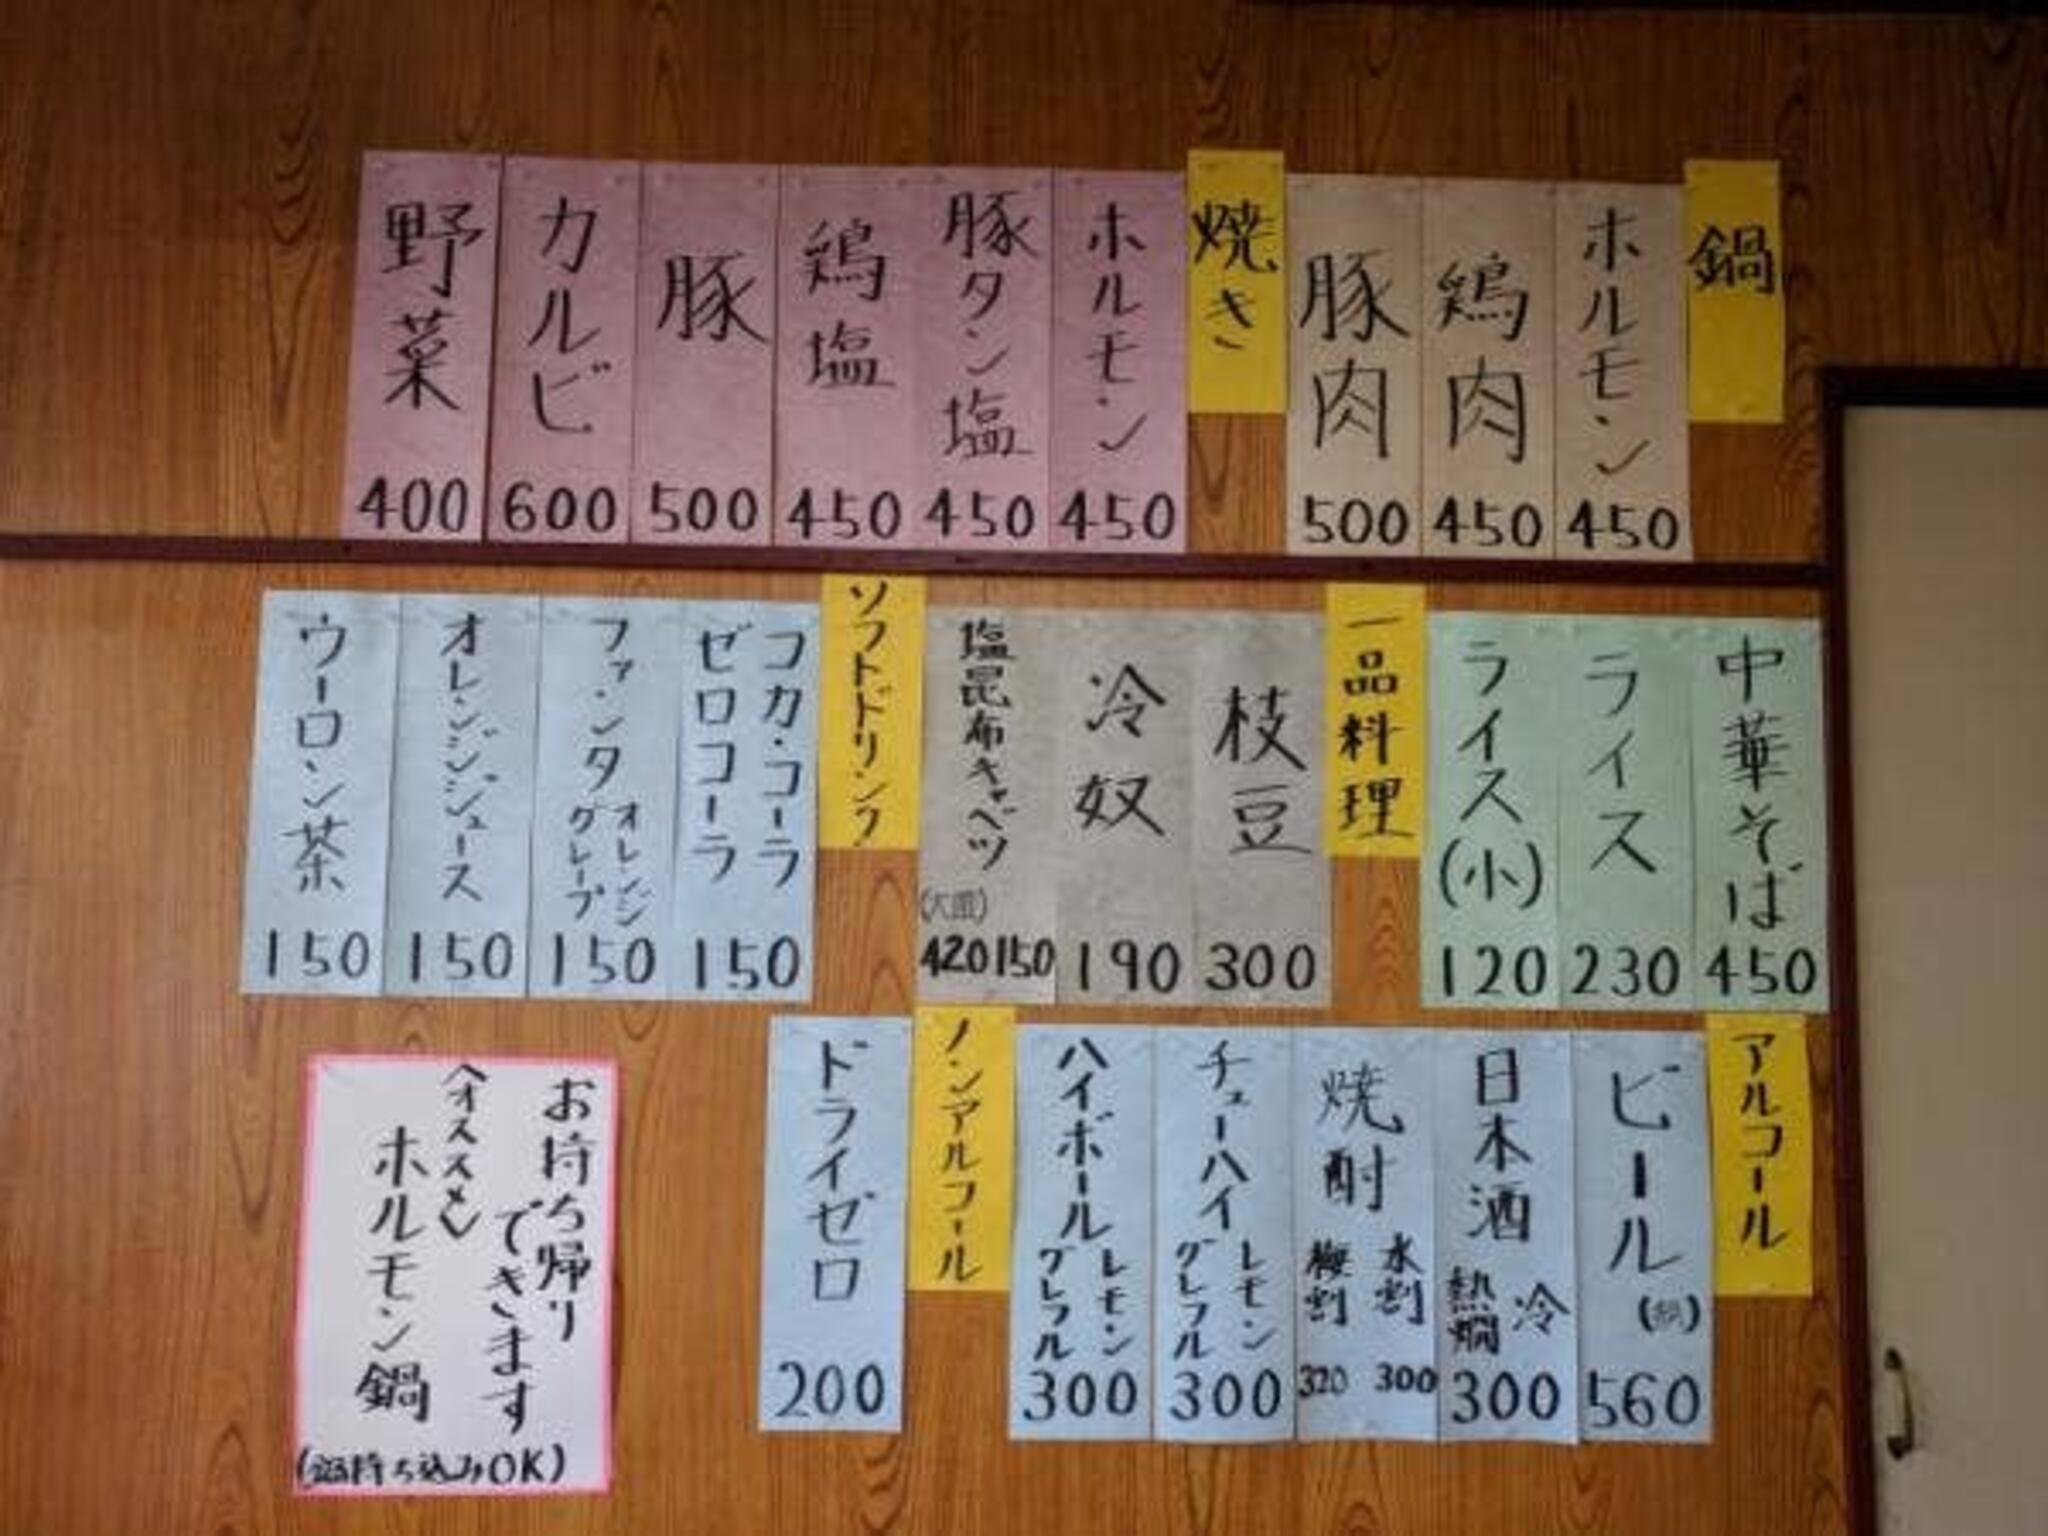 鍋
ホルモン
450
鶏肉
450
豚肉
500
焼き
ホルモン
450
豚タン塩
450
鶏塩
450
豚
500
カルビ
600
野菜
400
中華そば
450
ライス
230
ライス(小)
120
一品料理
枝豆
300
冷奴
190
塩昆布キャベツ
150
420
ソフトドリンク
コカ・コーラ
ゼロコーラ
150
ファンタ
オレンジ
グレープ
150
オレンジジュース
150
ウーロン茶
150
アルコール
ビール
560
日本酒
冷
熱燗
300
焼酎
水割
300
梅割
320
チューハイ
レモン
グレフル
300
ハイボール
レモン
グレフル
300
ノンアルコール
ドライゼロ
200
お持ち帰り
できます
〈オススメ〉
ホルモン鍋
(鍋持ち込みOK)